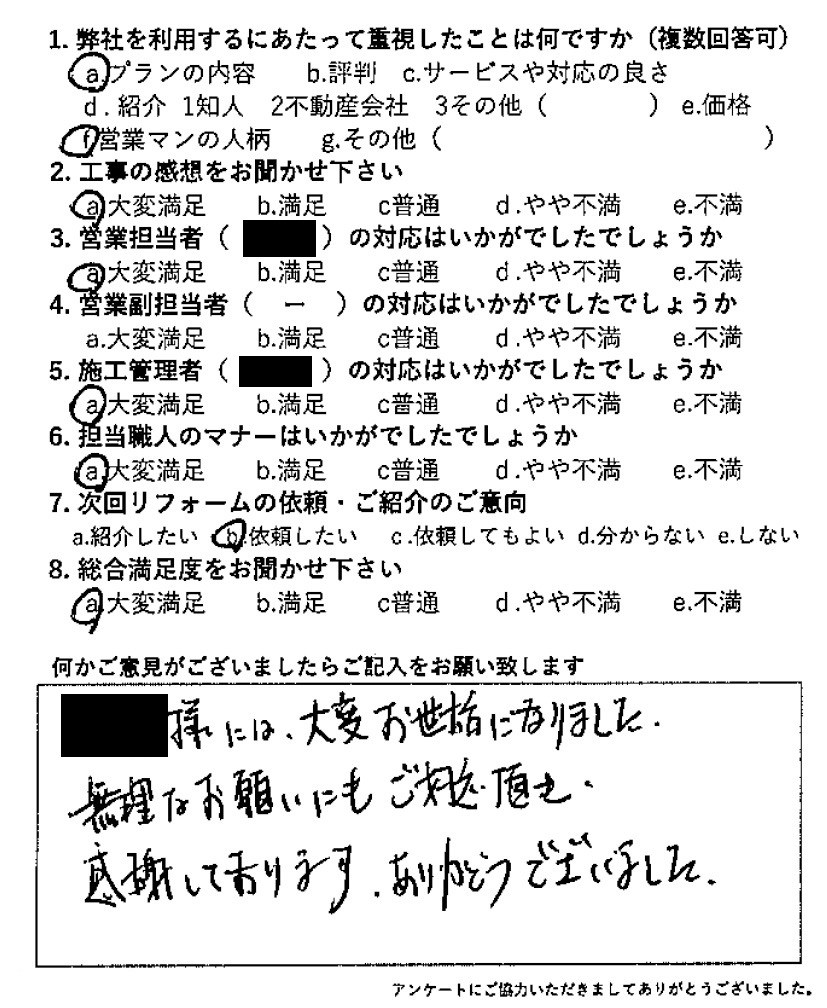 1. 弊社を利用するにあたって重視したことは何ですか（複数回答可）
a.プランの内容 b.評判 c.サービスや対応の良さ
d.紹介 1知人 2不動産会社 3その他（ ） e.価格
f.営業マンの人柄 g.その他（ ）
2. 工事の感想をお聞かせ下さい
a.大変満足 b.満足 c普通 d.やや不満 e.不満
3. 営業担当者（ ）の対応はいかがでしたでしょうか
a.大変満足 b.満足 c普通 d.やや不満 e.不満
4. 営業副担当者（ ー ）の対応はいかがでしたでしょうか
a.大変満足 b.満足 c普通 d.やや不満 e.不満
5. 施工管理者（ ）の対応はいかがでしたでしょうか
a.大変満足 b.満足 c普通 d.やや不満 e.不満
6. 担当職人のマナーはいかがでしたでしょうか
a.大変満足 b.満足 c普通 d.やや不満 e.不満
7. 次回リフォームの依頼・ご紹介のご意向
a.紹介したい b.依頼したい c.依頼してもよい d.分からない e.しない
8. 総合満足度をお聞かせ下さい
a.大変満足 b.満足 c普通 d.やや不満 e.不満
何かご意見がございましたらご記入をお願い致します
様には、大変お世話になりました.
無理なお願いにもご対応頂き、
感謝しております.ありがとうございました.
アンケートにご協力いただきましてありがとうございました。